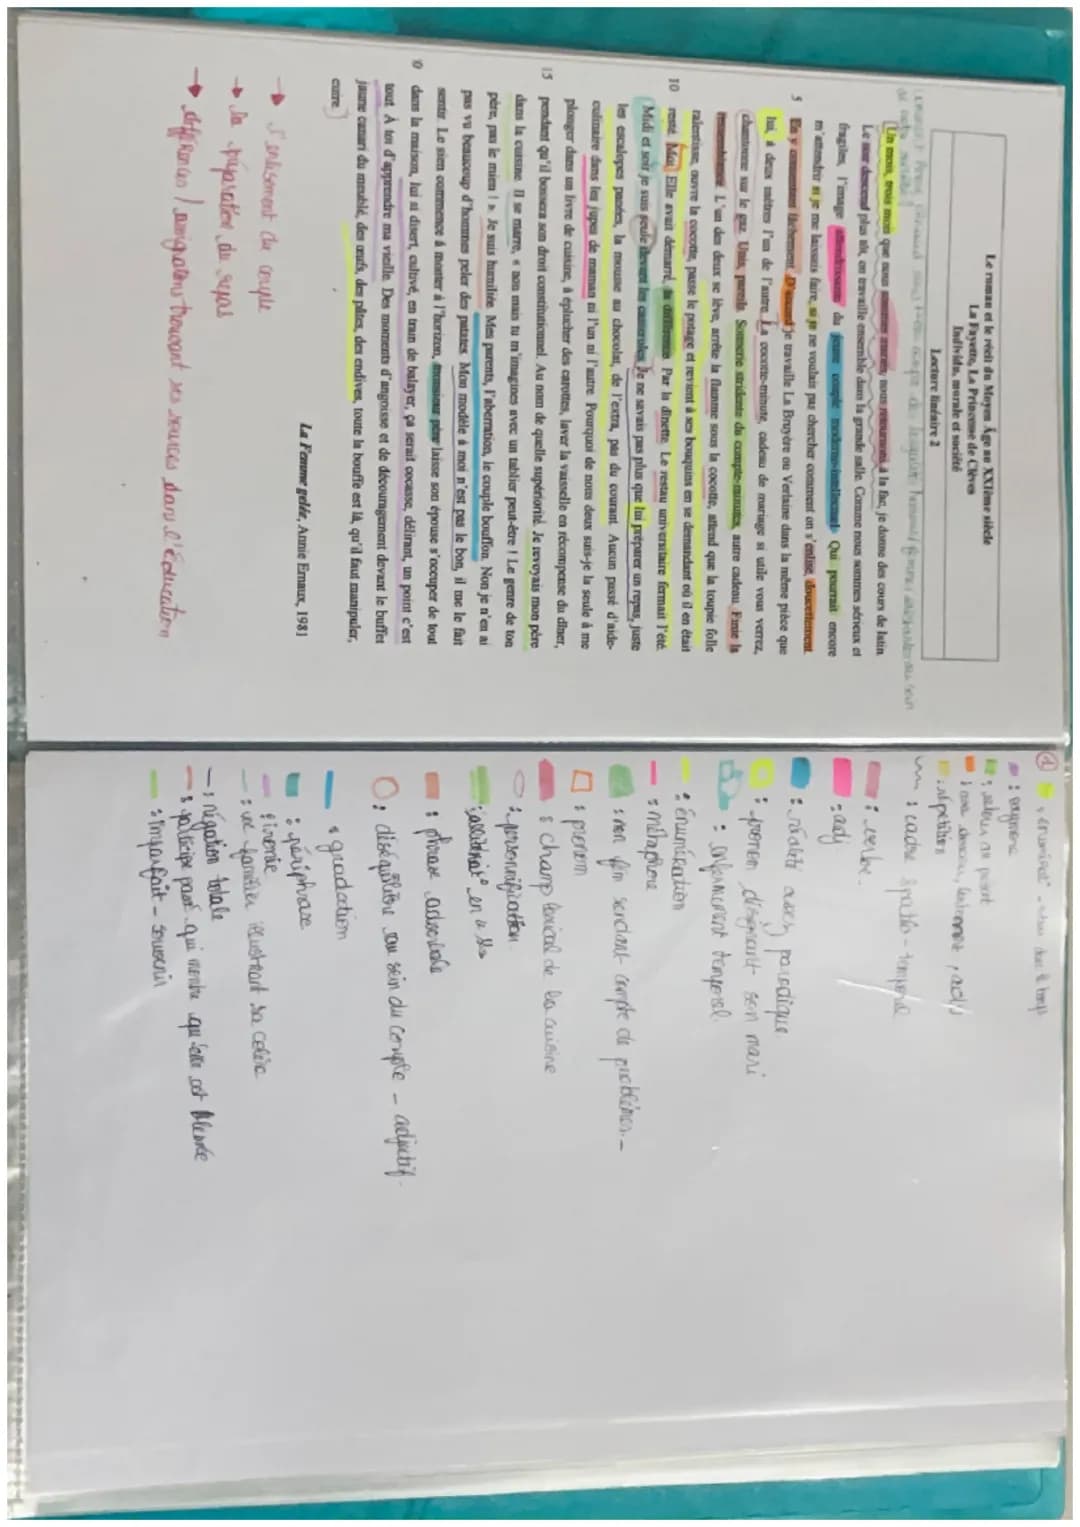 Le roman et le récit du Moyen Âge au XXIème siècle
La Fayette, La Princesse de Clèves
Individu, morale et société
Lecture linéaire 2
Un mois, trois mois que nous sommes mariés, nous retournons à la fac, je donne des cours de latin.
Le soir descend plus tôt, on travaille ensemble dans la grande salle. Comme nous sommes sérieux et
fragiles, l'image attendrissante du jeune couple moderno-intellectuel. Qui pourrait encore
m'attendrir si je me laissais faire, si je ne voulais pas chercher comment on s'enlise, doucettement.
5 En y consentant lâchement. D'accord je travaille La Bruyère ou Verlaine dans la même pièce que
lui, à deux mètres l'un de l'autre. La cocotte-minute, cadeau de mariage si utile vous verrez,
chantonne sur le gaz. Unis, pareils. Sonnerie stridente du compte-minutes, autre cadeau. Finie la
ressemblance. L'un des deux se lève, arrête la flamme sous la cocotte, attend que la toupie folle
ralentisse, ouvre la cocotte, passe le potage et revient à ses bouquins en se demandant où il en était
10 resté. Moi. Elle avait démarré, la différence. Par la dînette. Le restau universitaire fermait l'été.
Midi et soir je suis seule devant les casseroles. Je ne savais pas plus que lui préparer un repas, juste
les escalopes panées, la mousse au chocolat, de l'extra, pas du courant. Aucun passé d'aide-
culinaire dans les jupes de maman ni l'un ni l'autre. Pourquoi de nous deux suis-je la seule à me
plonger dans un livre de cuisine, à éplucher des carottes, laver la vaisselle en récompense du dîner,
15 pendant qu'il bossera son droit constitutionnel. Au nom de quelle supériorité. Je revoyais mon père
dans la cuisine. Il se marre, « non mais tu m'imagines avec un tablier peut-être ! Le genre de ton
père, pas le mien ! ». Je suis humiliée. Mes parents, l'aberration, le couple bouffon. Non je n'en ai
pas vu beaucoup d'hommes peler des patates. Mon modèle à moi n'est pas le bon, il me le fait
sentir. Le sien commence à monter à l'horizon, monsieur père laisse son épouse s'occuper de tout
dans la maison, lui si disert, cultivé, en train de balayer, ça serait cocasse, délirant, un point c'est
tout. À toi d'apprendre ma vieille. Des moments d'angoisse et de découragement devant le buffet
jaune canari du meublé, des œufs, des pâtes, des endives, toute la bouffe est là, qu'il faut manipuler,
cuire.
La Femme gelée, Annie Ernaux, 1981
→ S'enlisement du couple
→ La préparation du repas
→ différences / inégalités trouvant ses sources dans l'éducation
①
: oxymore
: valeur au présent
: répétition
: cadre spatio-temporel
: verbe
: adj
: réalité assez parodique
: pronom désignant son mari
: enfermement temporel
: énumération
: métaphore
: non fém rendant compte de problèmes -
: pronom
: champ lexical de la cuisine
: personnification
: allitérat° en
: phrase adverbiale
: déséquilibre au sein du couple - adjectif -
: gradation
: périphrase
: ironie
: voc familier illustrant sa colère
: négation totale
: participe passé qui montre qu'elle est blessée
: imparfait - souvenir